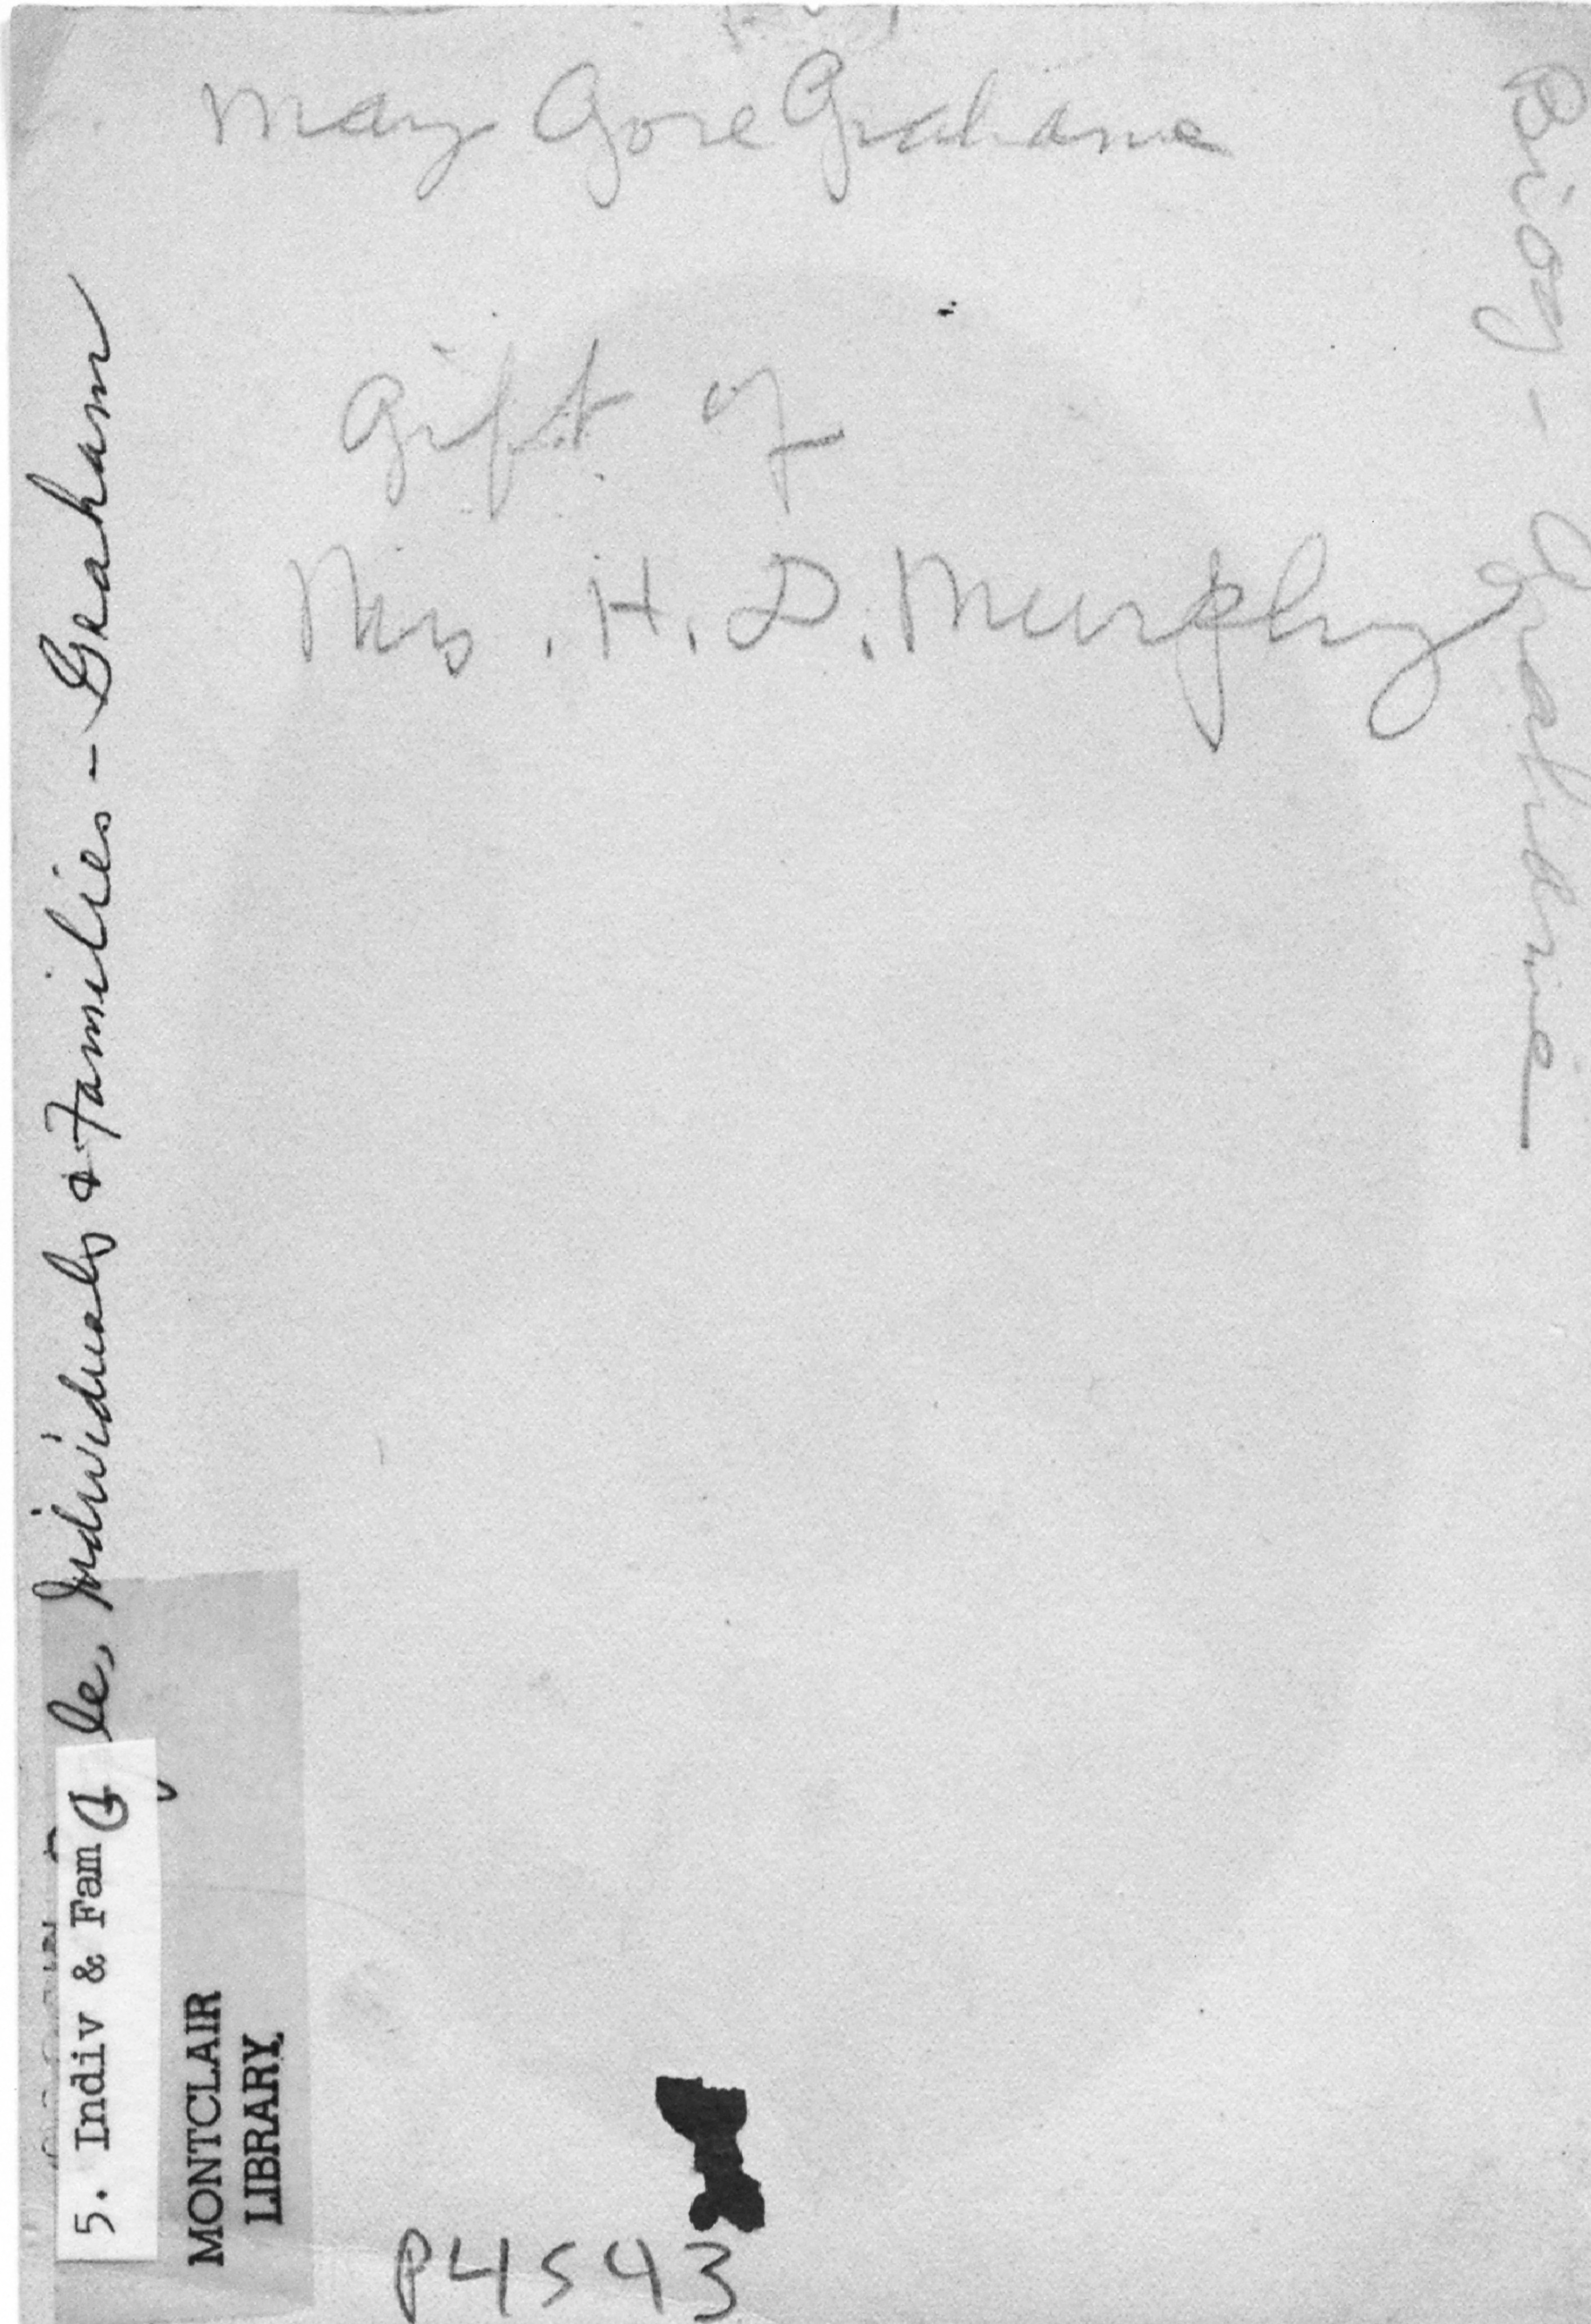 Mary Gore Grahame
Gift of
Mrs. H. D. Murphy
Biog - Grahame
le, Individuals & Families - Graham
5. Indiv & Fam G
MONTCLAIR
LIBRARY
P4543